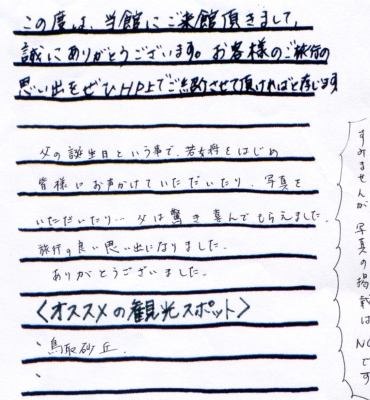 この度は、当館にご来館頂きまして、
誠にありがとうございます。お客様のご旅行の
思い出をぜひHP上でご紹介させて頂ければと存じます
父の誕生日という事で、若女将をはじめ
皆様にお声かけていただいたり、写真を
いただいたり…父は驚き喜んでもらえました。
旅行の良い思い出になりました。
ありがとうございました。
〈オススメの観光スポット〉
、鳥取砂丘
、
すみませんが、写真の掲載はNGです